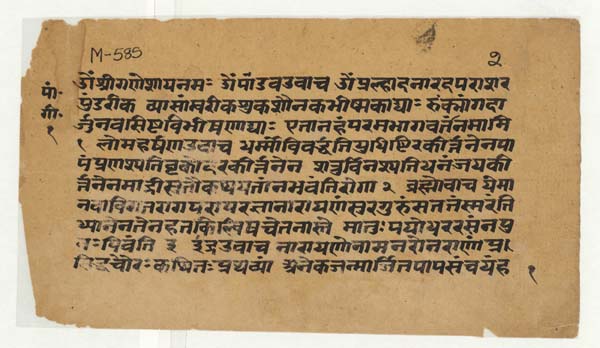 M-585
२
ॐ श्रीगणेशायनमः ॐ पांडवउवाच ॐ प्रल्हादनारदपराशर
पां॰
पुंडरीक व्यासांम्वरीकशुकशौनकभीष्मकाद्याः रुक्मांगदा
गी॰
र्जुनवासिष्टविभीषणाद्याः एतानहंपरमभागवतंन्नमामि
१
१ लोमहर्षणउवाच धर्म्मोविवर्द्धतियुधिष्टिरकीर्त्तनेनपा
पंप्रणश्यतिवृकोदरकीर्त्तनेन शत्रुर्विनश्यतिधनंजयकी
र्त्तनेनमाद्रीसुतौकथयतांनभवंतिरोगा २ ब्रह्मोवाच येमा
नवाविगतरागपरापरज्ञानारायणंसुरगुरुंसततंस्मरंति
ध्यानेनतेनहतकिल्विषचेतनास्ते मातुःपयोधररसंनपु
नःपिवंति ३ इंद्रउवाच नारायणोनामनरोनराणां प्र
सिद्धचौरःकथितःपृथव्यां अनेकजन्मार्जितपापसंचयंह
१